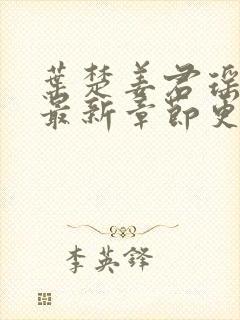 葉楚姜君瑶
最新章節更
李英鋒